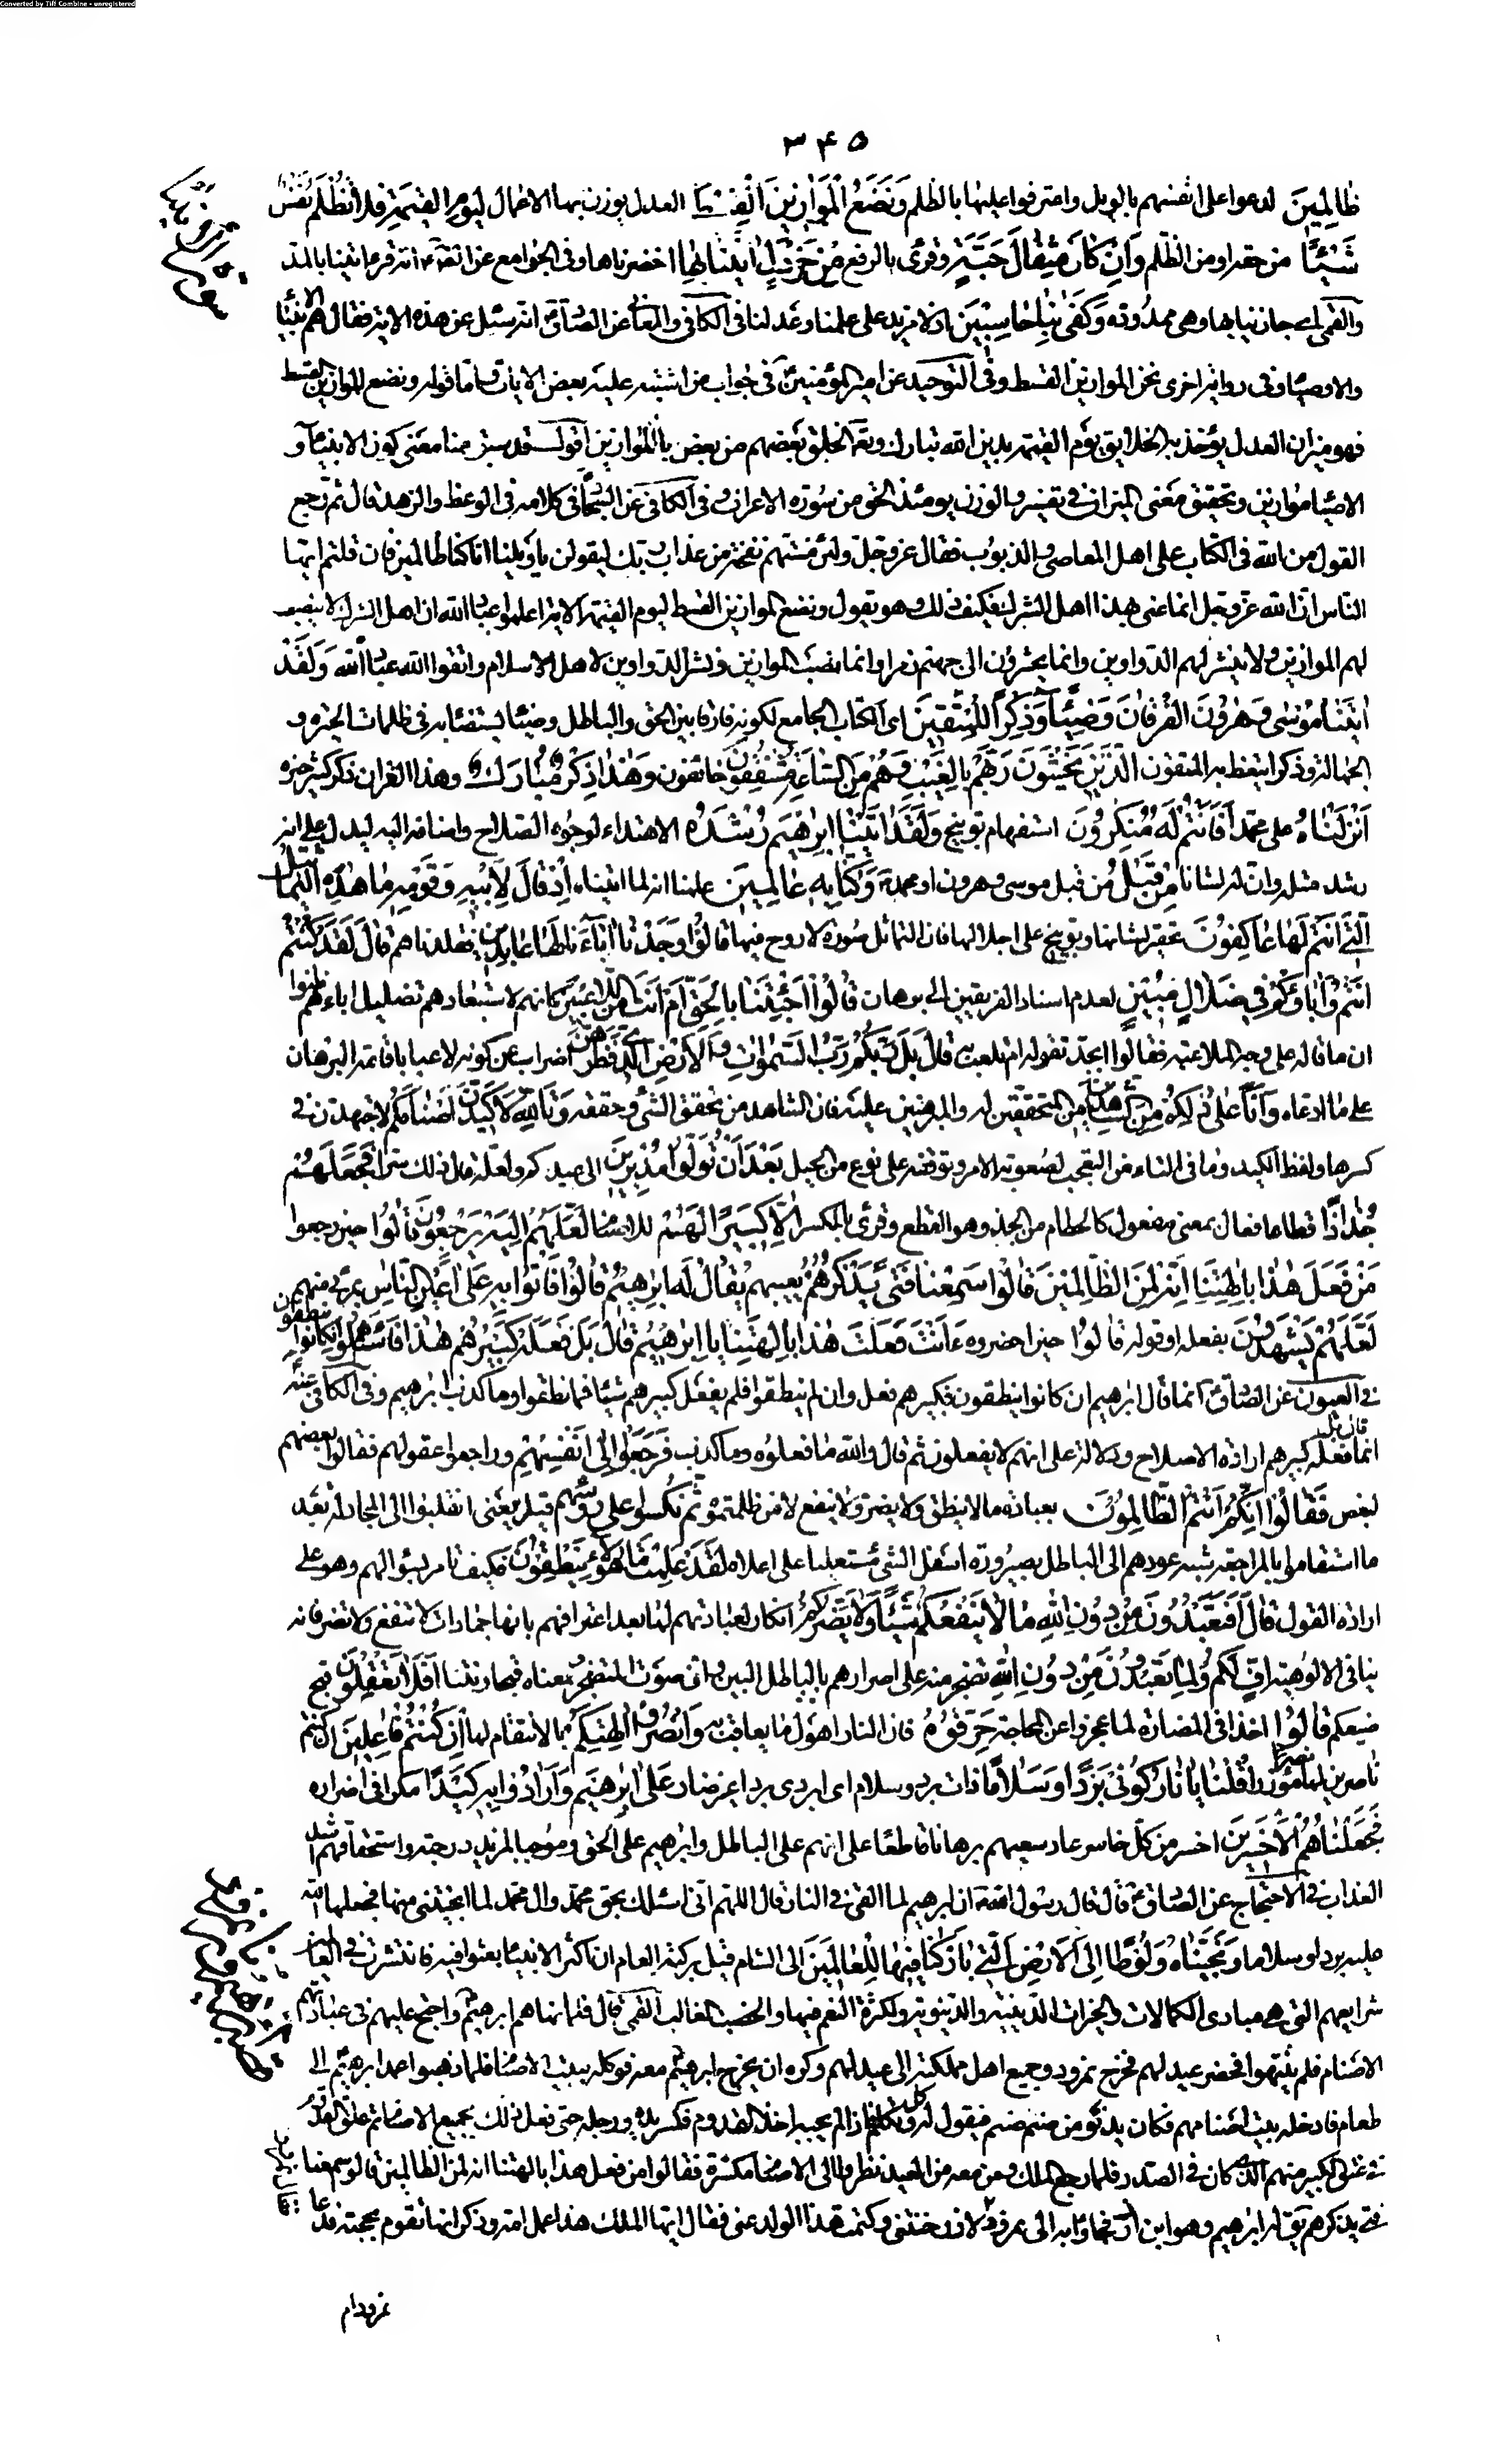 Converted by Tiff Combine - unregistered
۳۴۵
ظالِمِينَ لدعوا على انفسهم بالويل واعترفوا عليها بالظلم وَنَضَعُ الْمَوازِينَ الْقِسْطَ العدل يوزن بها الاعمال لِيَوْمِ الْقِيمَةِ فَلا تُظْلَمُ نَفْسٌ
شَيْئًا من حقه او من الظلم وَاِنْ كانَ مِثْقالَ حَبَّةٍ وقرئ بالرفع مِنْ خَرْدَلٍ اَتَيْنا بِها احضرناها وفى الجوامع عن الصادق انه قرء اتينا بالمد
والقمى اى جازينا بها وهى ممدودة وَكَفى بِنا حاسِبِينَ اذ لا مزيد على علمنا وعدلنا فى الكافى والمعانى عن الصادق انه سئل عن هذه الاية فقال هم الانبياء
والاوصياء وفى رواية اخرى نحن الموازين القسط وفى التوحيد عن امير المؤمنين فى جواب من اشتبه عليه بعض الايات واما قوله ونضع الموازين القسط
فهو ميزان العدل يؤخذ به الخلايق يوم القيمة يدين الله تبارك وتعالى الخلق بعضهم من بعض بالموازين اقول قد سبق منا معنى كون الانبياء و
الاوصياء موازين وتحقيق معنى الميزان فى تفسير والوزن يومئذ الحق من سورة الاعراف وفى الكافى عن السجاد فى كلامه فى الوعظ والزهد قال ثم رجع
القول من الله فى الكتاب على اهل المعاصى والذنوب فقال عز وجل ولئن مستهم نفحة من عذاب ربك ليقولن يا ويلنا انا كنا ظالمين فان قلتم ايها
الناس ان الله عز وجل انما عنى بهذا اهل الشرك فكيف ذلك وهو يقول ونضع الموازين القسط ليوم القيمة الاية اعلموا عباد الله ان اهل الشرك لا ينصب
لهم الموازين ولا ينشر لهم الدواوين وانما يحشرون الى جهنم زمرا وانما نصب الموازين ونشر الدواوين لاهل الاسلام واتقوا الله عباد الله وَلَقَدْ
اتَيْنا مُوسى وَهرُونَ الْفُرْقانَ وَضِياءً وَذِكْرًا لِلْمُتَّقِينَ اى الكتاب الجامع لكونه فارقا بين الحق والباطل وضياء يستضاء به فى ظلمات الحيرة و
الجهالة وذكرا يتعظ به المتقون اَلَّذِينَ يَخْشَوْنَ رَبَّهُمْ بِالْغَيْبِ وَهُمْ مِنَ السّاعَةِ مُشْفِقُونَ خائفون وَهذا ذِكْرٌ مُبارَكٌ وهذا القران ذكر كثير خيره
اَنْزَلْناهُ على محمد اَفَاَنْتُمْ لَهُ مُنْكِرُونَ استفهام توبيخ وَلَقَدْ اتَيْنا اِبْرهِيمَ رُشْدَهُ الاهتداء لوجوه الصلاح واضافته اليه ليدل على انه
رشد مثله وان له لشانا مِنْ قَبْلُ من قبل موسى وهرون او محمد وَكُنّا بِهِ عالِمِينَ علمنا انه لما اتيناه اِذْ قالَ لِاَبِيهِ وَقَوْمِهِ ما هذِهِ التَّماثِيلُ
الَّتِى اَنْتُمْ لَها عاكِفُونَ تحقير لشانها وتوبيخ على اجلالها فان التماثيل صورة لا روح فيها قالُوا وَجَدْنا اباءَنا لَها عابِدِينَ فقلدناهم قالَ لَقَدْ كُنْتُمْ
اَنْتُمْ وَاباؤُكُمْ فِى ضَلالٍ مُبِينٍ لعدم اسناد الفريقين الى برهان قالُوا اَجِئْتَنا بِالْحَقِّ اَمْ اَنْتَ مِنَ اللّاعِبِينَ كانهم لاستبعادهم تضليل اباءهم ظنوا
ان ما قاله على وجه الملاعبة فقالوا ابجد تقوله ام تلعب به قالَ بَلْ رَبُّكُمْ رَبُّ السَّمواتِ وَالْاَرْضِ الَّذِى فَطَرَهُنَّ اضراب عن كونه لاعبا باقامة البرهان
على ما ادعاه وَاَنَا عَلى ذلِكُمْ مِنَ الشّاهِدِينَ من المتحققين له والمبرهنين عليه فان الشاهد من تحقق الشئ وحققه وَتَاللهِ لَاَكِيدَنَّ اَصْنامَكُمْ لاجتهدن فى
كسرها ولفظ الكيد وما فى التاء من التعجب لصعوبة الامر وتوقفه على نوع من الحيل بَعْدَ اَنْ تُوَلُّوا مُدْبِرِينَ الى عيدكم ولعله قال ذلك سرا فَجَعَلَهُمْ
جُذاذًا قطاعا فعال بمعنى مفعول كالحطام من الجذ وهو القطع وقرئ بالكسر اِلّا كَبِيرًا لَهُمْ للاصنام لَعَلَّهُمْ اِلَيْهِ يَرْجِعُونَ قالُوا حين رجعوا
مَنْ فَعَلَ هذا بِالِهَتِنا اِنَّهُ لَمِنَ الظّالِمِينَ قالُوا سَمِعْنا فَتًى يَذْكُرُهُمْ يعيبهم يُقالُ لَهُ اِبْرهِيمُ قالُوا فَاْتُوا بِهِ عَلى اَعْيُنِ النّاسِ بمرئى منهم
لَعَلَّهُمْ يَشْهَدُونَ بفعله او قوله قالُوا حين احضروه ءَاَنْتَ فَعَلْتَ هذا بِالِهَتِنا يا اِبْرهِيمُ قالَ بَلْ فَعَلَهُ كَبِيرُهُمْ هذا فَاسْئَلُوهُمْ اِنْ كانُوا يَنْطِقُونَ
فى العيون عن الصادق انما قال ابرهيم ان كانوا ينطقون فكبيرهم فعل وان لم ينطقوا فلم يفعل كبيرهم شيئا فما نطقوا وما كذب ابرهيم وفى الكافى عنه
انما قال بل فعله كبيرهم ارادة الاصلاح ودلالة على انهم لا يفعلون ثم قال والله ما فعلوه وما كذب فَرَجَعُوا اِلى اَنْفُسِهِمْ وراجعوا عقولهم فقالوا بعضهم
لبعض فَقالُوا اِنَّكُمْ اَنْتُمُ الظّالِمُونَ بعبادة ما لا ينطق ولا يضر ولا ينفع لا من ظلمتموه ثُمَّ نُكِسُوا عَلى رُؤُسِهِمْ قيل يعنى انقلبوا الى المجادلة بعد
ما استقاموا بالمراجعة شبه عودهم الى الباطل بصيرورة اسفل الشئ مستعليا على اعلاه لَقَدْ عَلِمْتَ ما هؤُلاءِ يَنْطِقُونَ فكيف تامر بسؤالهم وهو على
ارادة القول قالَ اَفَتَعْبُدُونَ مِنْ دُونِ اللهِ ما لا يَنْفَعُكُمْ شَيْئًا وَلا يَضُرُّكُمْ انكار لعبادتهم لها بعد اعترافهم بانها جمادات لا تنفع ولا تضر فانه
ينافى الالوهية اُفٍّ لَكُمْ وَلِما تَعْبُدُونَ مِنْ دُونِ اللهِ تضجر منه على اصرارهم بالباطل البين واف صوت المتضجر ومعناه قبحا ونتنا اَفَلا تَعْقِلُونَ قبح
صنيعكم قالُوا اخذا فى المضارة لما عجزوا عن المحاجة حَرِّقُوهُ فان النار اهول ما يعاقب به وَانْصُرُوا الِهَتَكُمْ بالانتقام لها اِنْ كُنْتُمْ فاعِلِينَ ان كنتم
ناصرين لها نصرا مؤزرا قُلْنا يا نارُ كُونِى بَرْدًا وَسَلامًا ذات برد وسلام اى ابردى بردا غير ضار عَلى اِبْرهِيمَ وَاَرادُوا بِهِ كَيْدًا مكرا فى اضراره
فَجَعَلْناهُمُ الْاَخْسَرِينَ اخسر من كل خاسر عاد سعيهم برهانا قاطعا على انهم على الباطل وابرهيم على الحق وموجبا لمزيد درجته واستحقاقهم اشد
العذاب فى الاحتجاج عن الصادق قال قال رسول الله ان ابرهيم لما القى فى النار قال اللهم انى اسئلك بحق محمد وال محمد لما انجيتنى منها فجعلها الله
عليه بردا وسلاما وَنَجَّيْناهُ وَلُوطًا اِلَى الْاَرْضِ الَّتِى بارَكْنا فِيها لِلْعالَمِينَ الى الشام قيل بركته العام ان اكثر الانبياء بعثوا فيه فانتشرت فى العالمين
شرايعهم التى هى مبادى الكمالات والخيرات الدينية والدنيوية ولكثرة النعم فيها والخصب الغالب القمى قال فلما نهاهم ابرهيم واحتج عليهم فى عبادتهم
الاصنام فلم ينتهوا فحضر عيد لهم فخرج نمرود وجميع اهل مملكته الى عيد لهم وكره ان يخرج ابرهيم معه فوكله ببيت الاصنام فلما ذهبوا عمد ابرهيم الى
طعام فادخله بيت اصنامهم فكان يدنو من صنم صنم فيقول له كل وتكلم فاذا لم يجبه اخذ القدوم فكسر يده ورجله حتى فعل ذلك بجميع الاصنام ثم علق القدوم
فى عنق الكبير منهم الذى كان فى الصدر فلما رجع الملك ومن معه من العيد نظروا الى الاصنام مكسرة فقالوا من فعل هذا بالهتنا انه لمن الظالمين قالوا سمعنا
فتى يذكرهم يقال له ابرهيم وهو ابن ازر فجاؤا به الى نمرود فقال نمرود لازر خنتنى وكتمت هذا الولد عنى فقال ايها الملك هذا عمل امه وذكر انها تقوم بحجته فدعا
نمرود ام